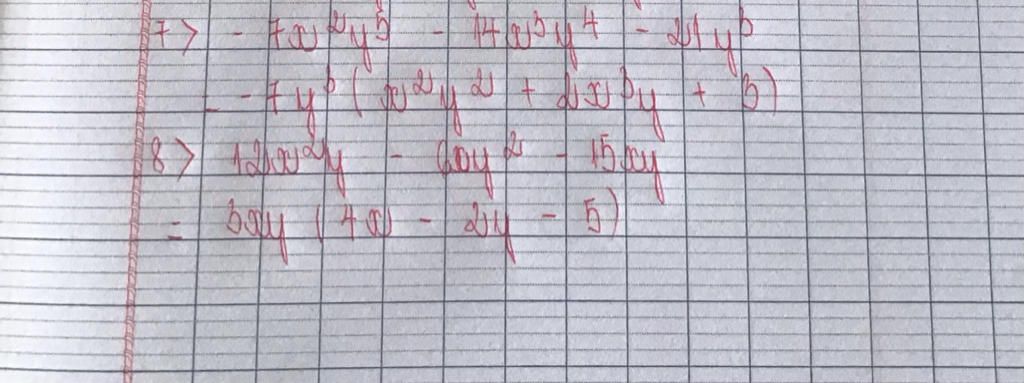 7> - 7x²y⁵ - 14x³y⁴ - 21y³
= -7y³ ( x²y² + 2x³y + 3)
8> 12x²y - 6xy² - 15xy
= 3xy ( 4x - 2y - 5)